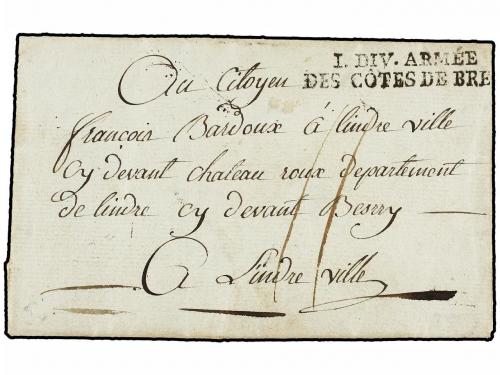 I. DIV. ARMÉE
DES CÔTES DE BRE
Au Citoyen
francois Bardoux à lindre ville
cy devant chateau roux departement
de lindre cy devant Berry
A Lindre ville